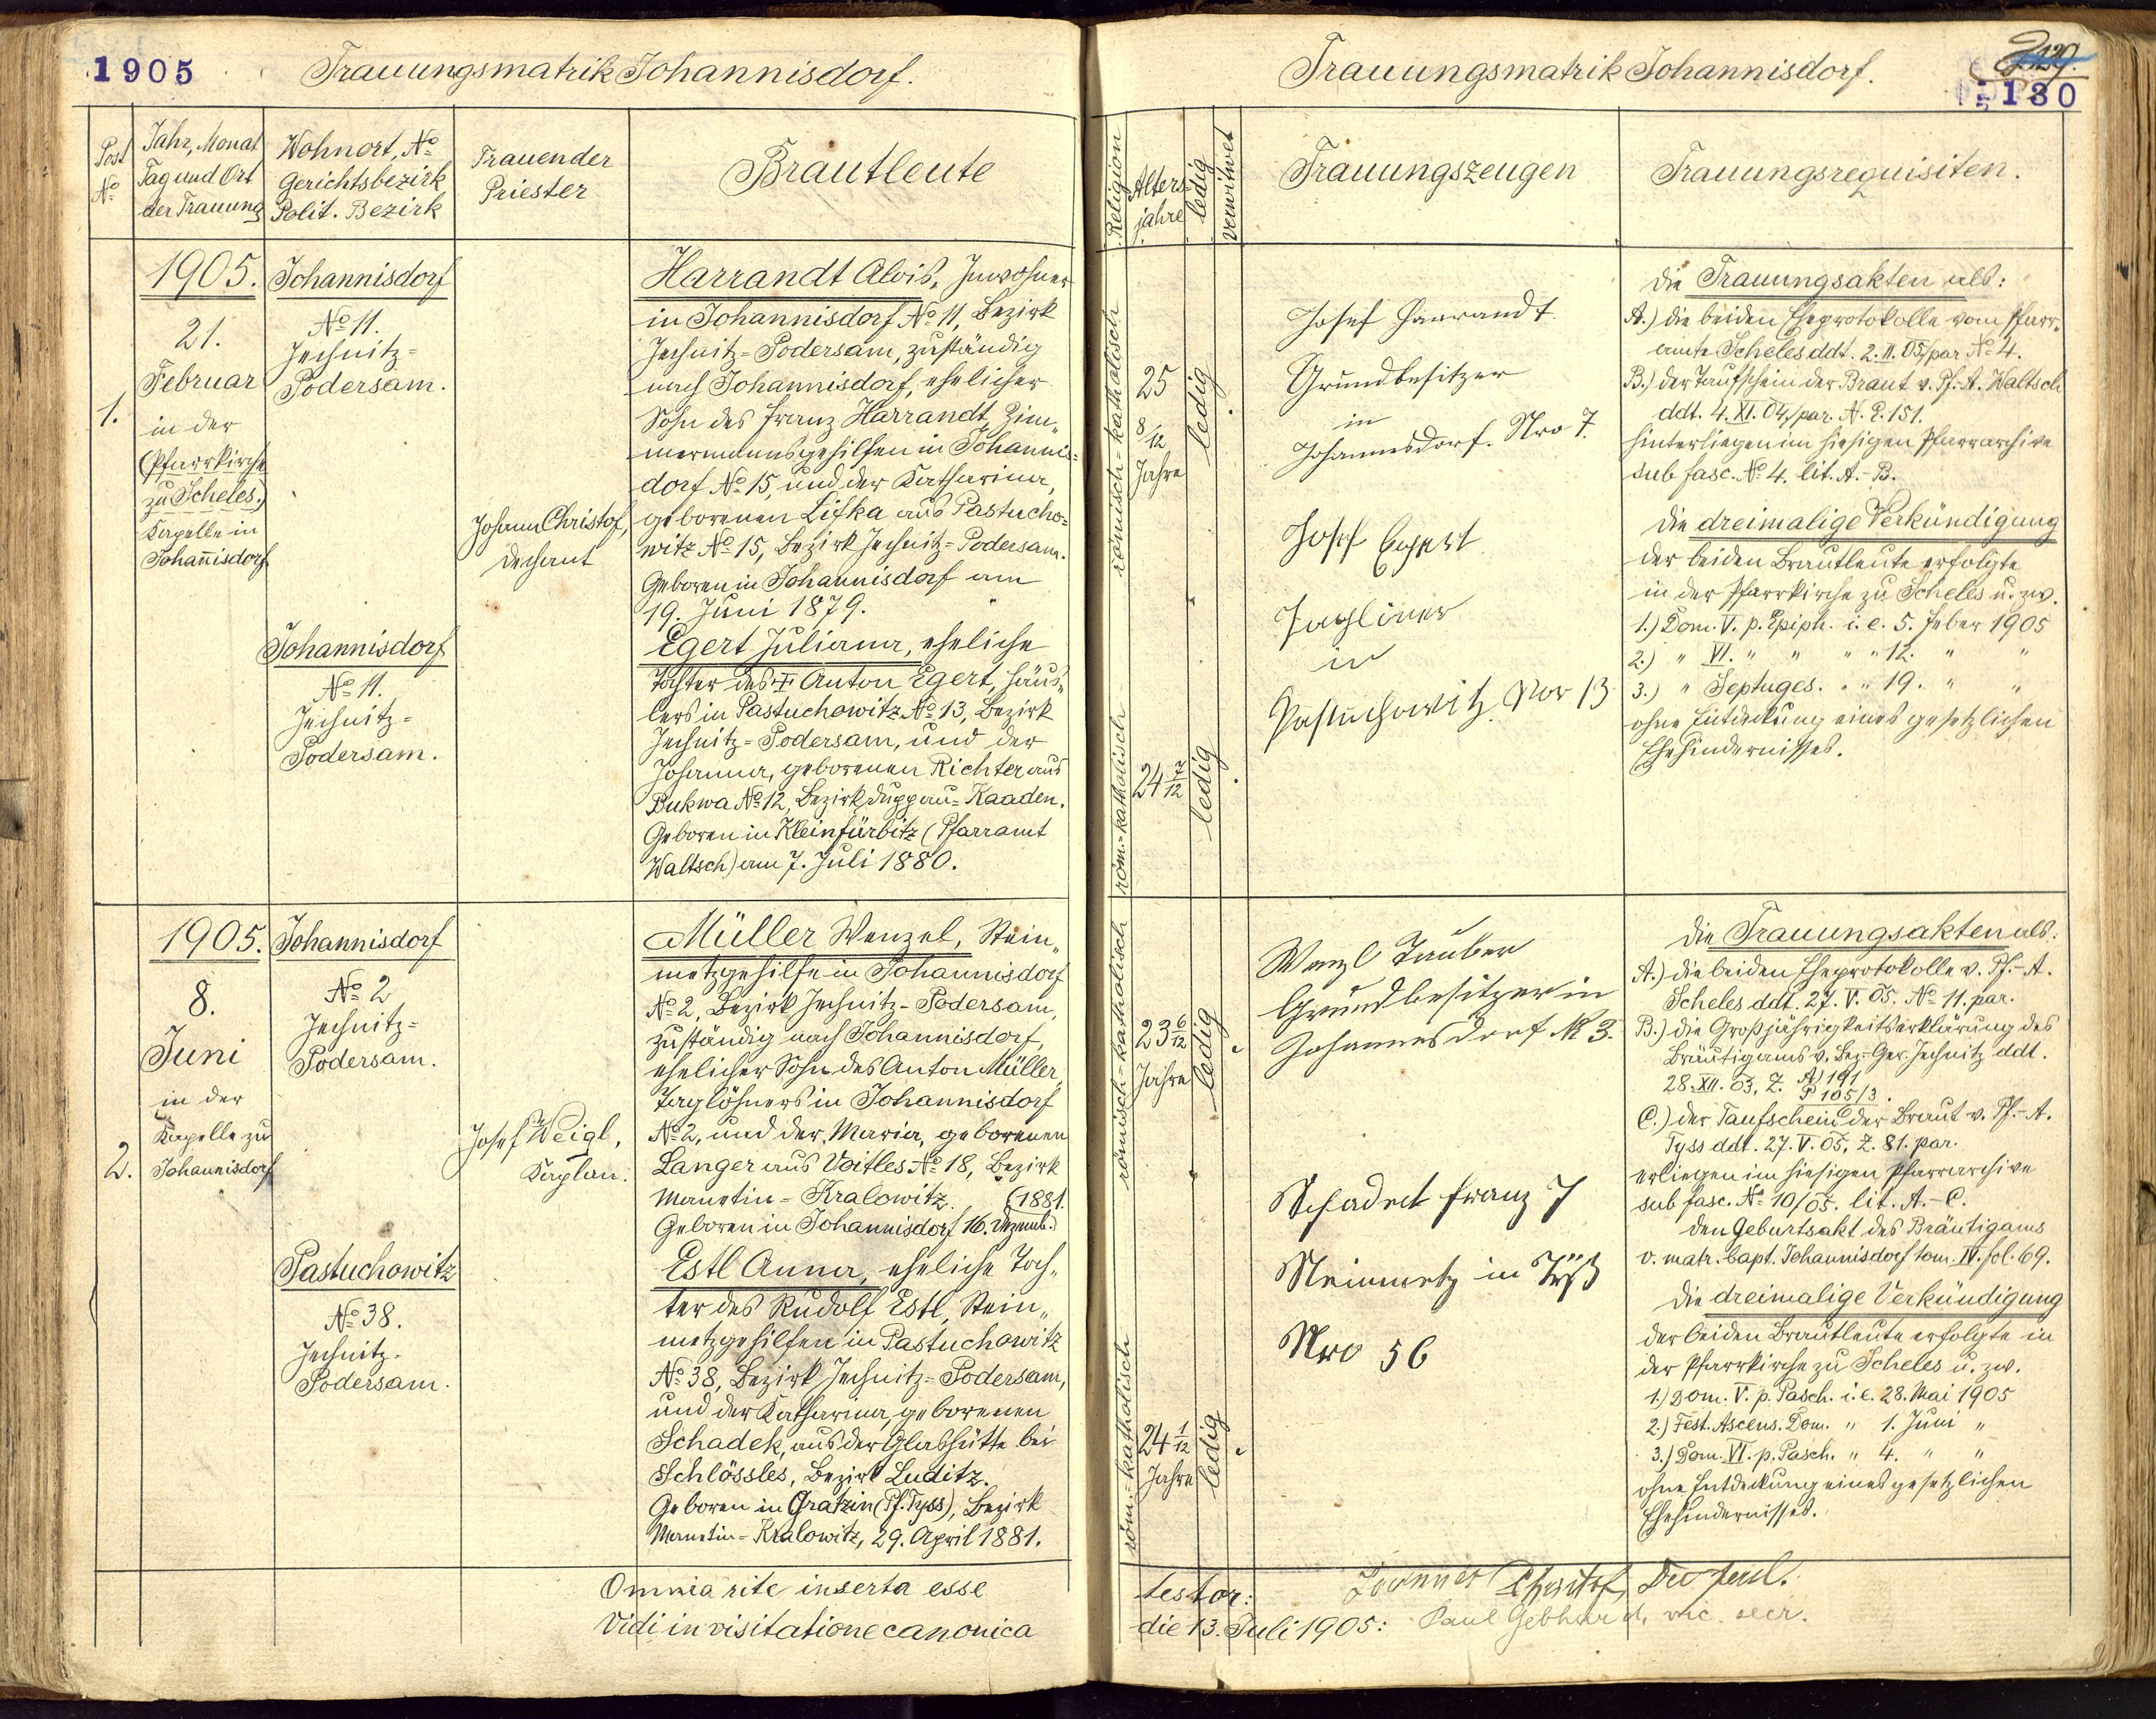 1905
Trauungsmatrik Johannisdorf.
Post
No
Jahr, Monat
Tag und Ort
der Trauung
Wohnort, No
Gerichtsbezirk
Polit. Bezirk
Trauender
Priester
Brautleute
1.
1905.
21.
Februar
in der
(Pfarrkirche
zu Scheles.)
Kapelle in
Johannisdorf
Johannisdorf
No 11.
Jechnitz=
Podersam.
Johannisdorf
No 11.
Jechnitz=
Podersam.
Johann Christof,
Dechant
Harrandt Alois, Inwohner
in Johannisdorf No 11, Bezirk
Jechnitz=Podersam, zuständig
nach Johannisdorf, ehelicher
Sohn des Franz Harrandt, Zim„
mermannsgehilfen in Johannis=
dorf No 15, und der Katharina,
geborenen Lifka aus Pastucho=
witz No 15, Bezirk Jechnitz=Podersam.
Geboren in Johannisdorf am
19. Juni 1879.
Egert Juliana, eheliche
Tochter des † Anton Egert, Häus„
lers in Pastuchowitz No 13, Bezirk
Jechnitz=Podersam, und der
Johanna, geborenen Richter aus
Bukwa No 12, Bezirk Duppau=Kaaden.
Geboren in Kleinfürbitz (Pfarramt
Waltsch) am 7. Juli 1880.
2.
1905.
8.
Juni
in der
Kapelle zu
Johannisdorf
Johannisdorf
No 2
Jechnitz=
Podersam.
Pastuchowitz
No 38.
Jechnitz-
Podersam.
Josef Weigl,
Kaplan.
Müller Wenzel, Stein„
metzgehilfe in Johannisdorf
No 2, Bezirk Jechnitz-Podersam,
zuständig nach Johannisdorf,
ehelicher Sohn des Anton Müller,
Taglöhners in Johannisdorf
No 2, und der Maria, geborenen
Langer aus Voitles No 18, Bezirk
Manetin=Kralowitz. (1881.
Geboren in Johannisdorf 16. Dezemb.)
Estl Anna, eheliche Toch„
ter des Rudolf Estl, Stein„
metzgehilfen in Pastuchowitz
No 38, Bezirk Jechnitz=Podersam,
und der Katharina, geborenen
Schadek, aus der Glashütte bei
Schlössles, Bezirk Luditz.
Geboren in Gratzin (Pf. Tyss), Bezirk
Manetin=Kralowitz, 29. April 1881.
Omnia rite inserta esse
Vidi in visitatione canonica
Trauungsmatrik Johannisdorf.
129.
130
Religion
Alters-
jahre
ledig
verwitwet
Trauungszeugen
Trauungsrequisiten.
römisch-katholisch
25
8/12
Jahre
ledig
röm.-katholisch
24 7/12
ledig
Josef Harrandt
Grundbesitzer
in
Johannesdorf. Nro 7.
Josef Egert
Taglöner
in
Pastuchowitz Nor 13
Die Trauungsakten als:
A.) die beiden Eheprotokolle vom Pfarr„
amte Scheles ddt. 2. II. 05, par No 4.
B.) der Taufschein der Braut v. Pf.-A. Waltsch
ddt. 4. XI. 04, par. N. E. 151.
hinterliegen im hiesigen Pfarrarchive
sub fasc. No 4. lit. A.-B.
Die dreimalige Verkündigung
der beiden Brautleute erfolgte
in der Pfarrkirche zu Scheles u. zw.
1.) Dom. V. p. Epiph. i. e. 5. Feber 1905
2.) " VI. " " " " 12. " "
3.) " Septuges. " " 19. " "
ohne Entdeckung eines gesetzlichen
Ehehindernisses.
römisch-katholisch
23 6/12
Jahre
ledig
röm.-katholisch
24 1/12
Jahre
ledig
Wenzl Tauber
Grundbesitzer in
Johannesdorf N 3.
Schadek Franz
Steinmetz in Tyß
Nro 56
Die Trauungsakten als:
A.) die beiden Eheprotokolle v. Pf.-A.
Scheles ddt. 27. V. 05, No 11. par.
B.) die Großjährigkeitserklärung des
Bräutigams v. Bez.-Ger. Jechnitz ddt.
28. XII. 03, Z. A) 191
P 105/3.
C.) der Taufschein der Braut v. Pf.-A.
Tyss ddt. 27. V. 05, Z. 81. par.
erliegen im hiesigen Pfarrarchive
sub fasc. No 10/05. lit. A.-C.
Den Geburtsakt des Bräutigams
v. matr. bapt. Johannisdorf tom. IV. fol. 69.
Die dreimalige Verkündigung
der beiden Brautleute erfolgte in
der Pfarrkirche zu Scheles u. zw.
1.) Dom. V. p. Pasch. i. e. 28. Mai 1905
2.) Fest. Ascens. Dom. " 1. Juni "
3.) Dom. VI. p. Pasch. " 4. " "
ohne Entdeckung eines gesetzlichen
Ehehindernisses.
testor: Joannes Christof,
die 13. Juli 1905: Paul Gebhard, vic. secr.